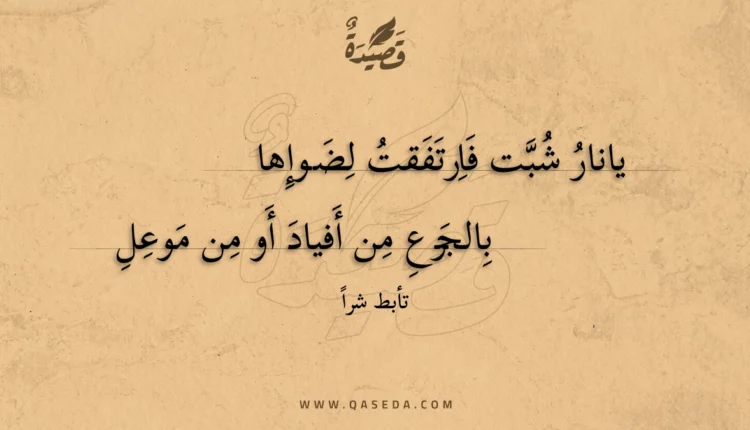 قَصِيْدَةٌ
يانارُ شُبَّت فَاِرتَفَقتُ لِضَوإِها
بِالجَزعِ مِن أَفيادَ أَو مِن مَوعِلِ
تأبط شراً
WWW.QASEDA.COM